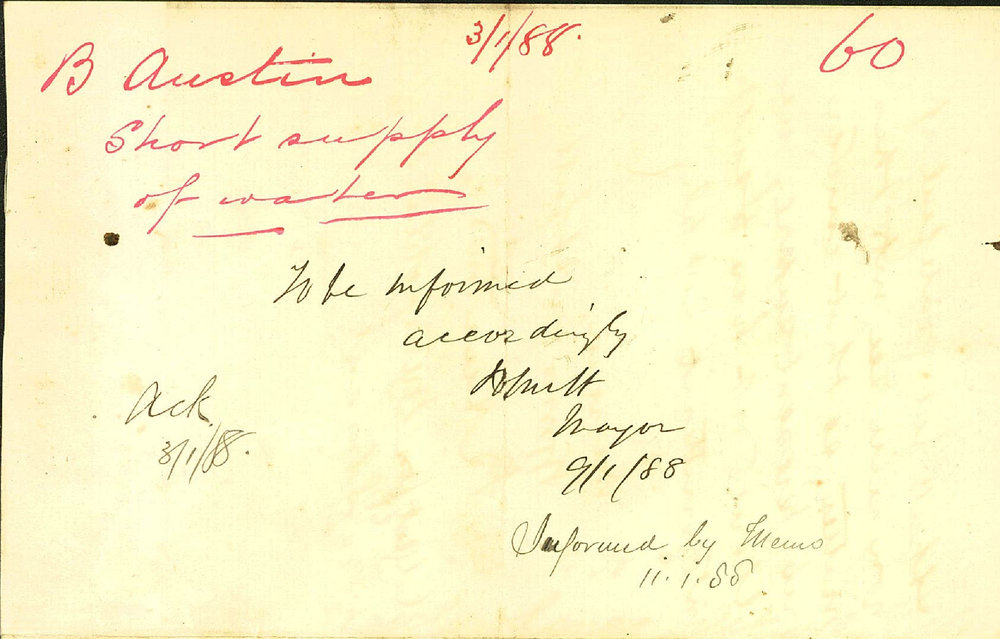 3/1/88.
60
B Austin
Short supply
of water
To be informed
accordingly
Mayor
9/1/88
Ack.
3/1/88.
Informed by Memo
11.1.88